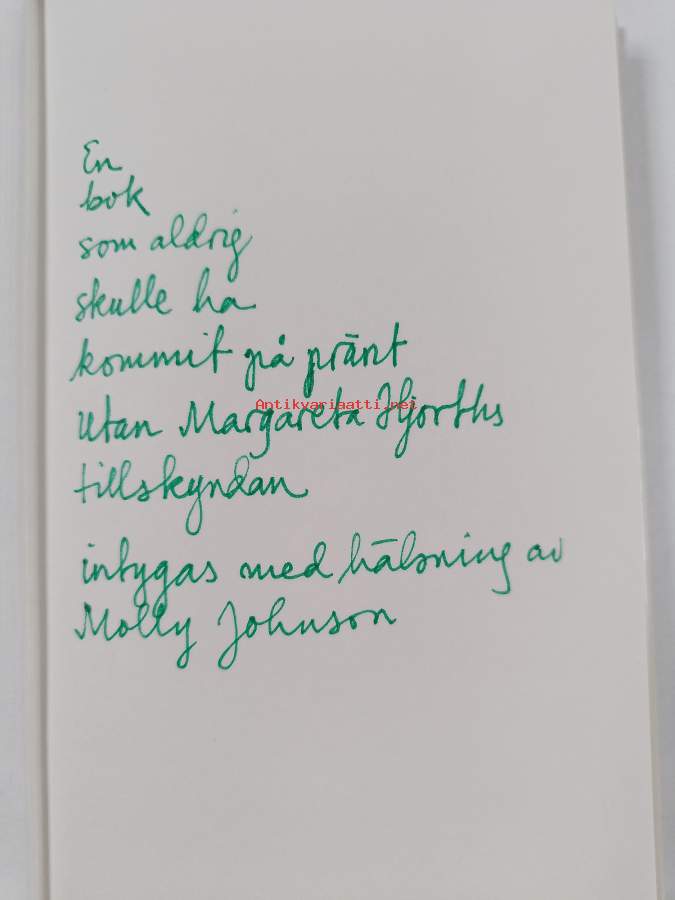 En
bok
som aldrig
skulle ha
kommit på pränt
Antikvariaatti.net
utan Margareta Hjorths
tillskyndan
intygas med hälsning av
Molly Johnson